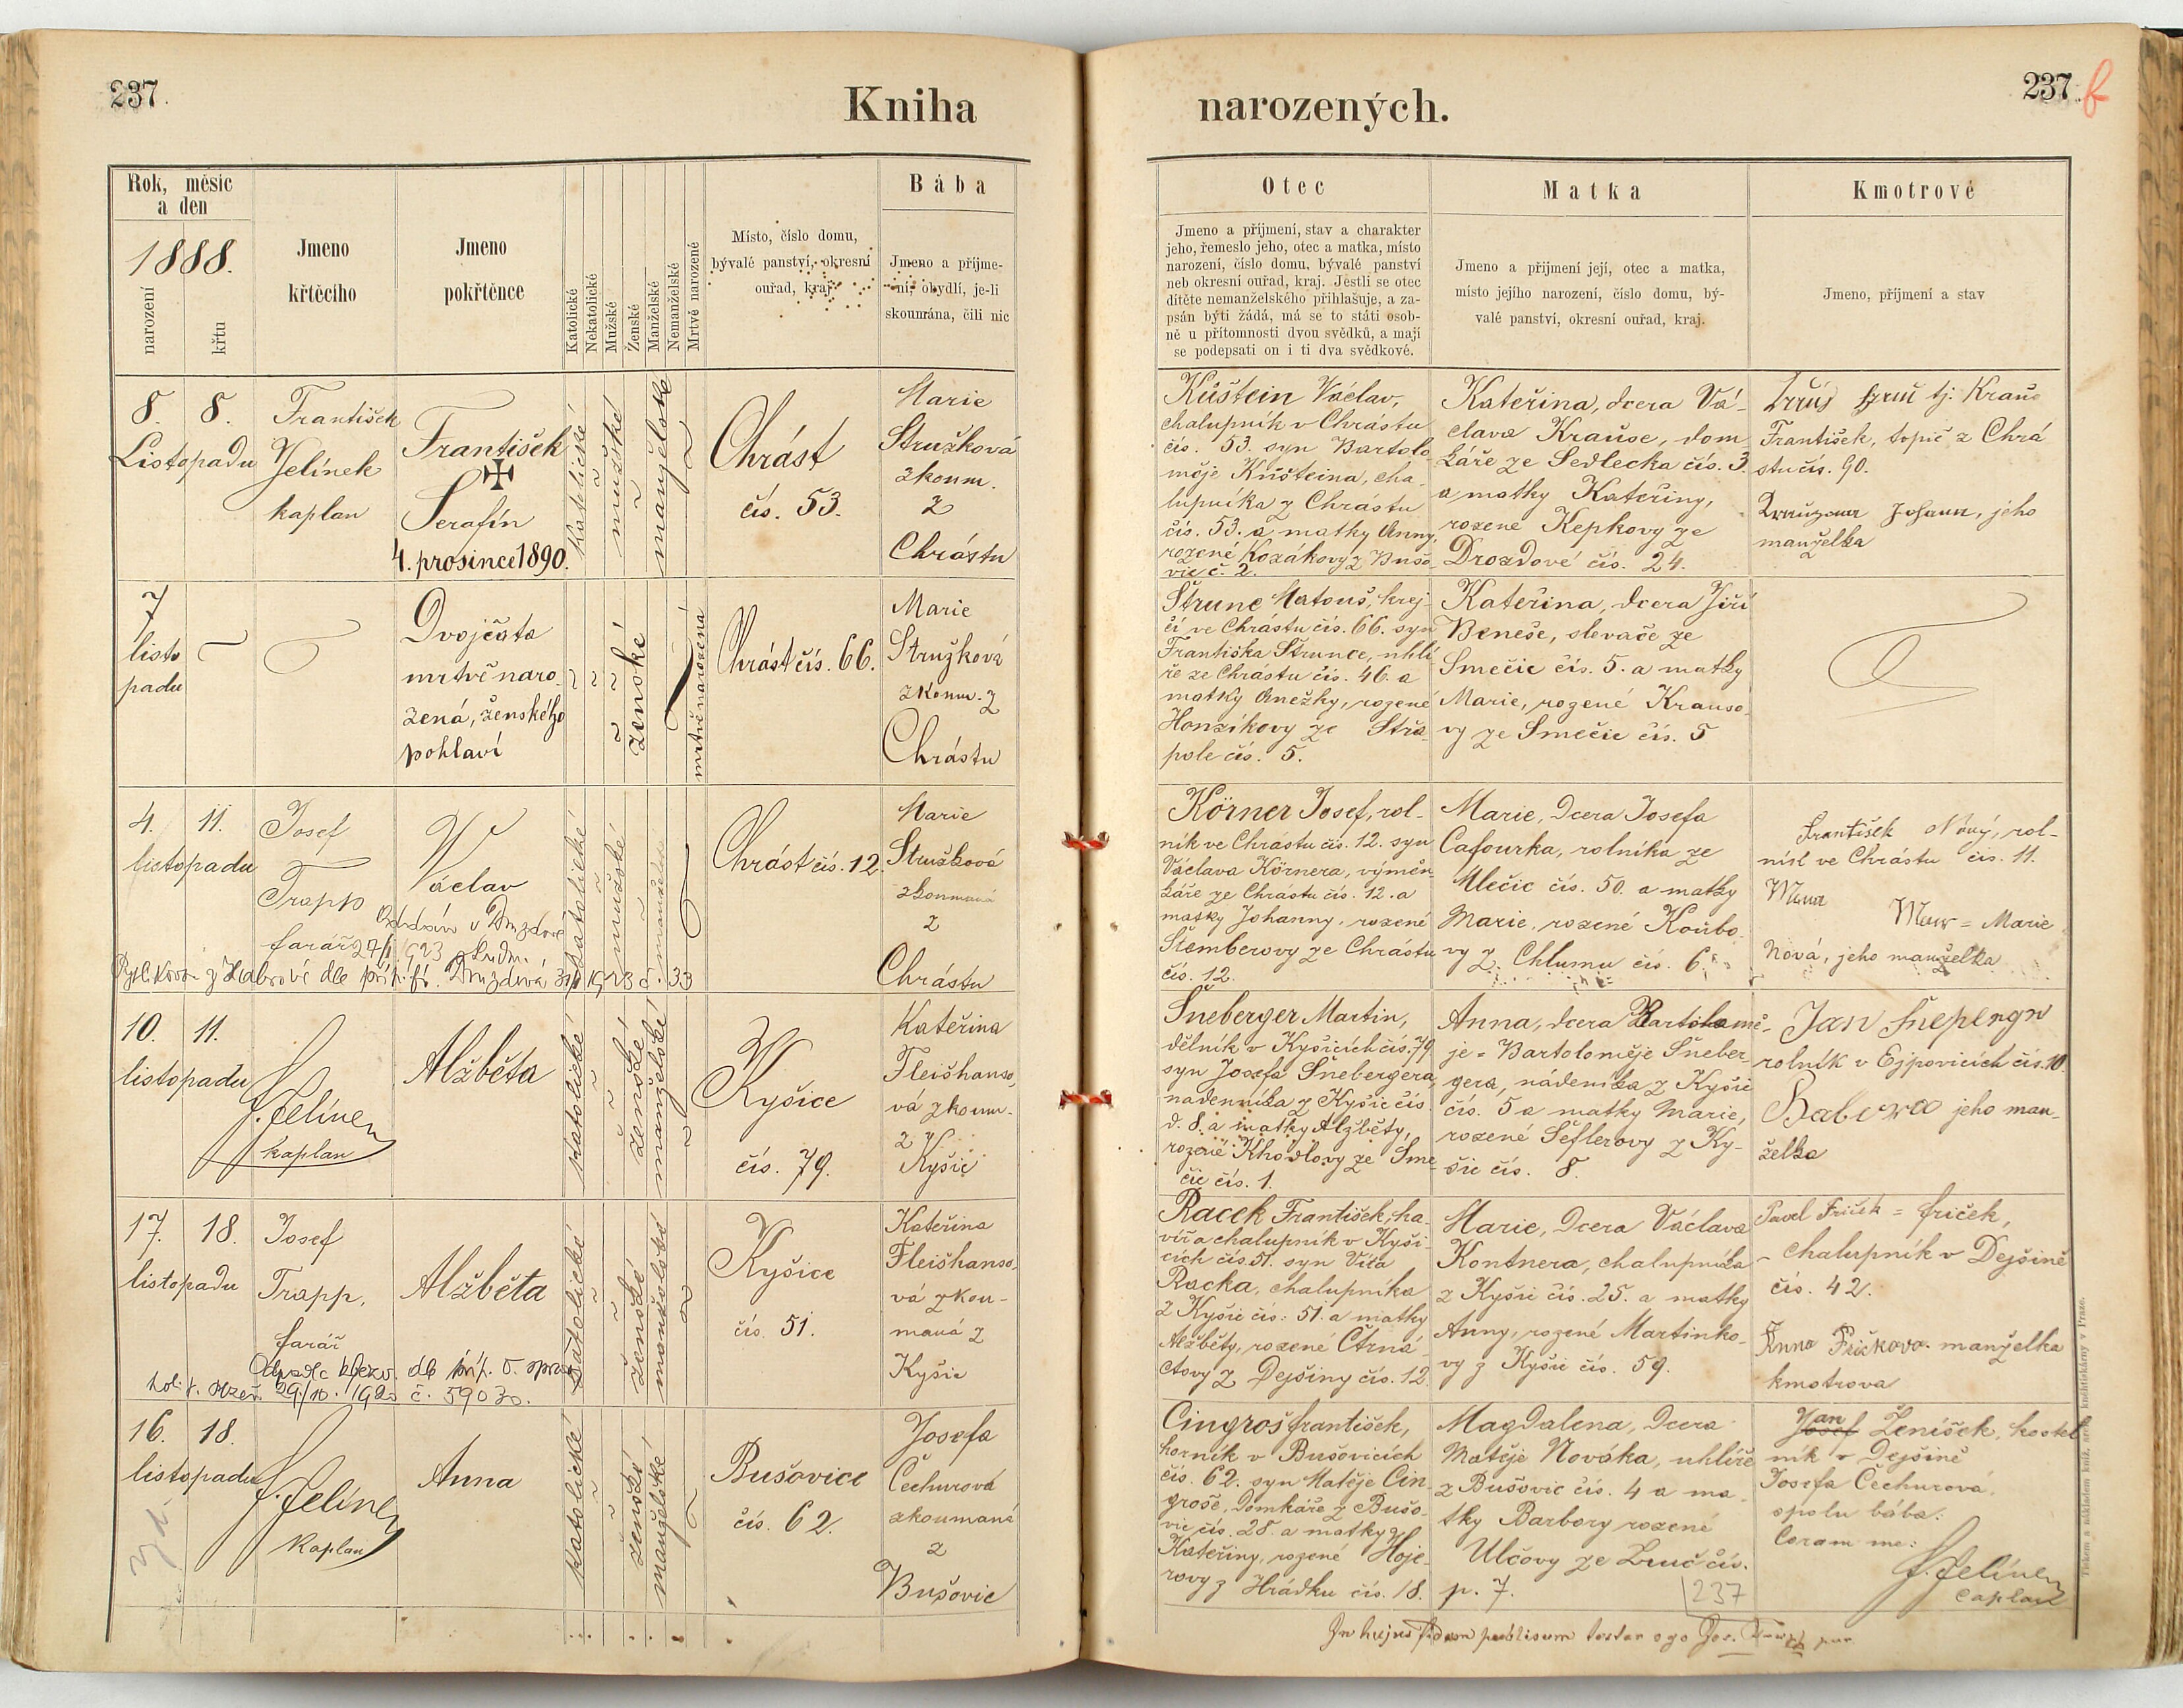 237.
Kniha
narozených.
237.
Rok, měsíc
a den
1888.
narození
křtu
Jmeno
křtěcího
Jmeno
pokřtěnce
Katolické
Nekatolické
Mužské
Ženské
Manželské
Nemanželské
Mrtvě narozené
Místo, číslo domu,
bývalé panství, okresní
ouřad, kraj
Bába
Jmeno a příjme-
ní, obydlí, je-li
skoumána, čili nic
Otec
Jmeno a příjmení, stav a charakter
jeho, řemeslo jeho, otec a matka, místo
narození, číslo domu, bývalé panství
neb okresní ouřad, kraj. Jestli se otec
dítěte nemanželského přihlašuje, a za-
psán býti žádá, má se to státi osob-
ně u přítomnosti dvou svědků, a mají
se podepsati on i ti dva svědkové.
Matka
Jmeno a přijmení její, otec a matka,
místo jejího narození, číslo domu, bý-
valé panství, okresní ouřad, kraj.
Kmotrové
Jmeno, příjmení a stav
8. 8.
Listopadu
František
Jelínek
kaplan
František
Serafín
4. prosince 1890.
katolické
mužské
manželské
Chrást
čís. 53.
Marie
Stružková
zkoum.
z
Chrástu
Küstein Václav,
chalupník v Chrástu
čís. 53. syn Bartolo
měje Küsteina, cha-
lupníka z Chrástu
čís. 53. a matky Anny,
rozené Kozákovy z Bušo-
vic č. 2.
Kateřina, dcera Vá-
clava Krause, dom
káře ze Sedlecka čís. 3.
a matky Kateřiny,
rozené Kepkovy ze
Drozdové čís. 24.
tj: Kraus
František, topič z Chrá
stu čís. 90.
Johann, jeho
manželka
7
listo
padu
Dvojčata
mrtvě naro-
zená, ženského
pohlaví
ženské
mrtvě narozená
Chrást čís. 66.
Marie
Stružková
zkoum. z
Chrástu
Štrunc Matouš, krej-
čí ve Chrástu čís. 66. syn
Františka Štrunce, uhlí
ře ze Chrástu čís. 46. a
matky Anežky, rozené
Honzíkovy ze Stra-
pole čís. 5.
Kateřina, dcera Jiří
Beneše, slevače ze
Smečic čís. 5. a matky
Marie, rozené Krauso-
vy ze Smečic čís. 5
4. 11.
listopadu
Josef
Trapp
farář
Václav
katolické
mužské
manželské
Chrást čís. 12.
Marie
Stružková
zkoumaná
z
Chrástu
Körner Josef, rol-
ník ve Chrástu čís. 12. syn
Václava Körnera, výměn-
káře ze Chrástu čís. 12. a
matky Johanny, rozené
Štemberovy ze Chrástu
čís. 12.
Marie, dcera Josefa
Cafourka, rolníka ze
Mlečic čís. 50. a matky
Marie, rozené Koubo-
vy z Chlumu čís. 6.
František Nový, rol-
ník ve Chrástu čís. 11.
Marie
Nová, jeho manželka
10. 11.
listopadu
J. Jelínek
kaplan
Alžběta
katolické
ženské
manželské
Kyšice
čís. 79.
Kateřina
Fleišhanso-
vá zkoum.
z
Kyšic
Šneberger Martin,
dělník v Kyšicích čís. 79
syn Josefa Šnebergera,
nádenníka z Kyšic čís.
d. 8. a matky Alžběty,
rozené Khódlovy ze Sme-
čic čís. 1.
Anna, dcera Bartolomě-
je = Bartoloměje Šneber-
gera, nádeníka z Kyšic
čís. 5 a matky Marie,
rozené Šeflerovy z Ky-
šic čís. 8.
Jan
rolník v Ejpovicích čís. 10.
jeho man-
želka
17. 18.
listopadu
Josef
Trapp,
farář
Alžběta
katolické
ženské
manželské
29./10. 1920 č. 59030.
Kyšice
čís. 51.
Kateřina
Fleišhanso-
vá zkou-
maná z
Kyšic
Racek František, ha-
víř a chalupník v Kyši-
cích čís. 51. syn Víta
Racka, chalupníka
z Kyšic čís: 51. a matky
Alžběty, rozené Čtrná-
ctovy z Dejšiny čís. 12
Marie, dcera Václava
Kontnera, chalupníka
z Kyšic čís. 25. a matky
Anny, rozené Martinko-
vy z Kyšic čís. 59.
Pavel Friček = Friček,
chalupník v Dejšině
čís. 42.
Anna Fričkova manželka
kmotrova
16. 18.
listopadu
J. Jelínek
Kaplan
Anna
katolické
ženské
manželské
Bušovice
čís. 62.
Josefa
Čechurová
zkoumaná
z
Bušovic
Cingroš František,
horník v Bušovicích
čís. 62. syn Matěje Cin-
groše, domkáře z Bušo-
vic čís. 28. a matky
Kateřiny, rozené Hoje-
rovy z Hrádku čís. 18.
Magdalena, dcera
Matěje Nováka, uhlíře
z Bušovic čís. 4 a ma-
tky Barbory rozené
Ulčovy ze Zruč čís.
p. 7.
Jan
Josef Ženíšek, kostel
ník v Dejšině
Josefa Čechurová
spolu bába:
Coram me:
J. Jelínek
caplan
237
In hujus fidem publicam testor ego Jos.